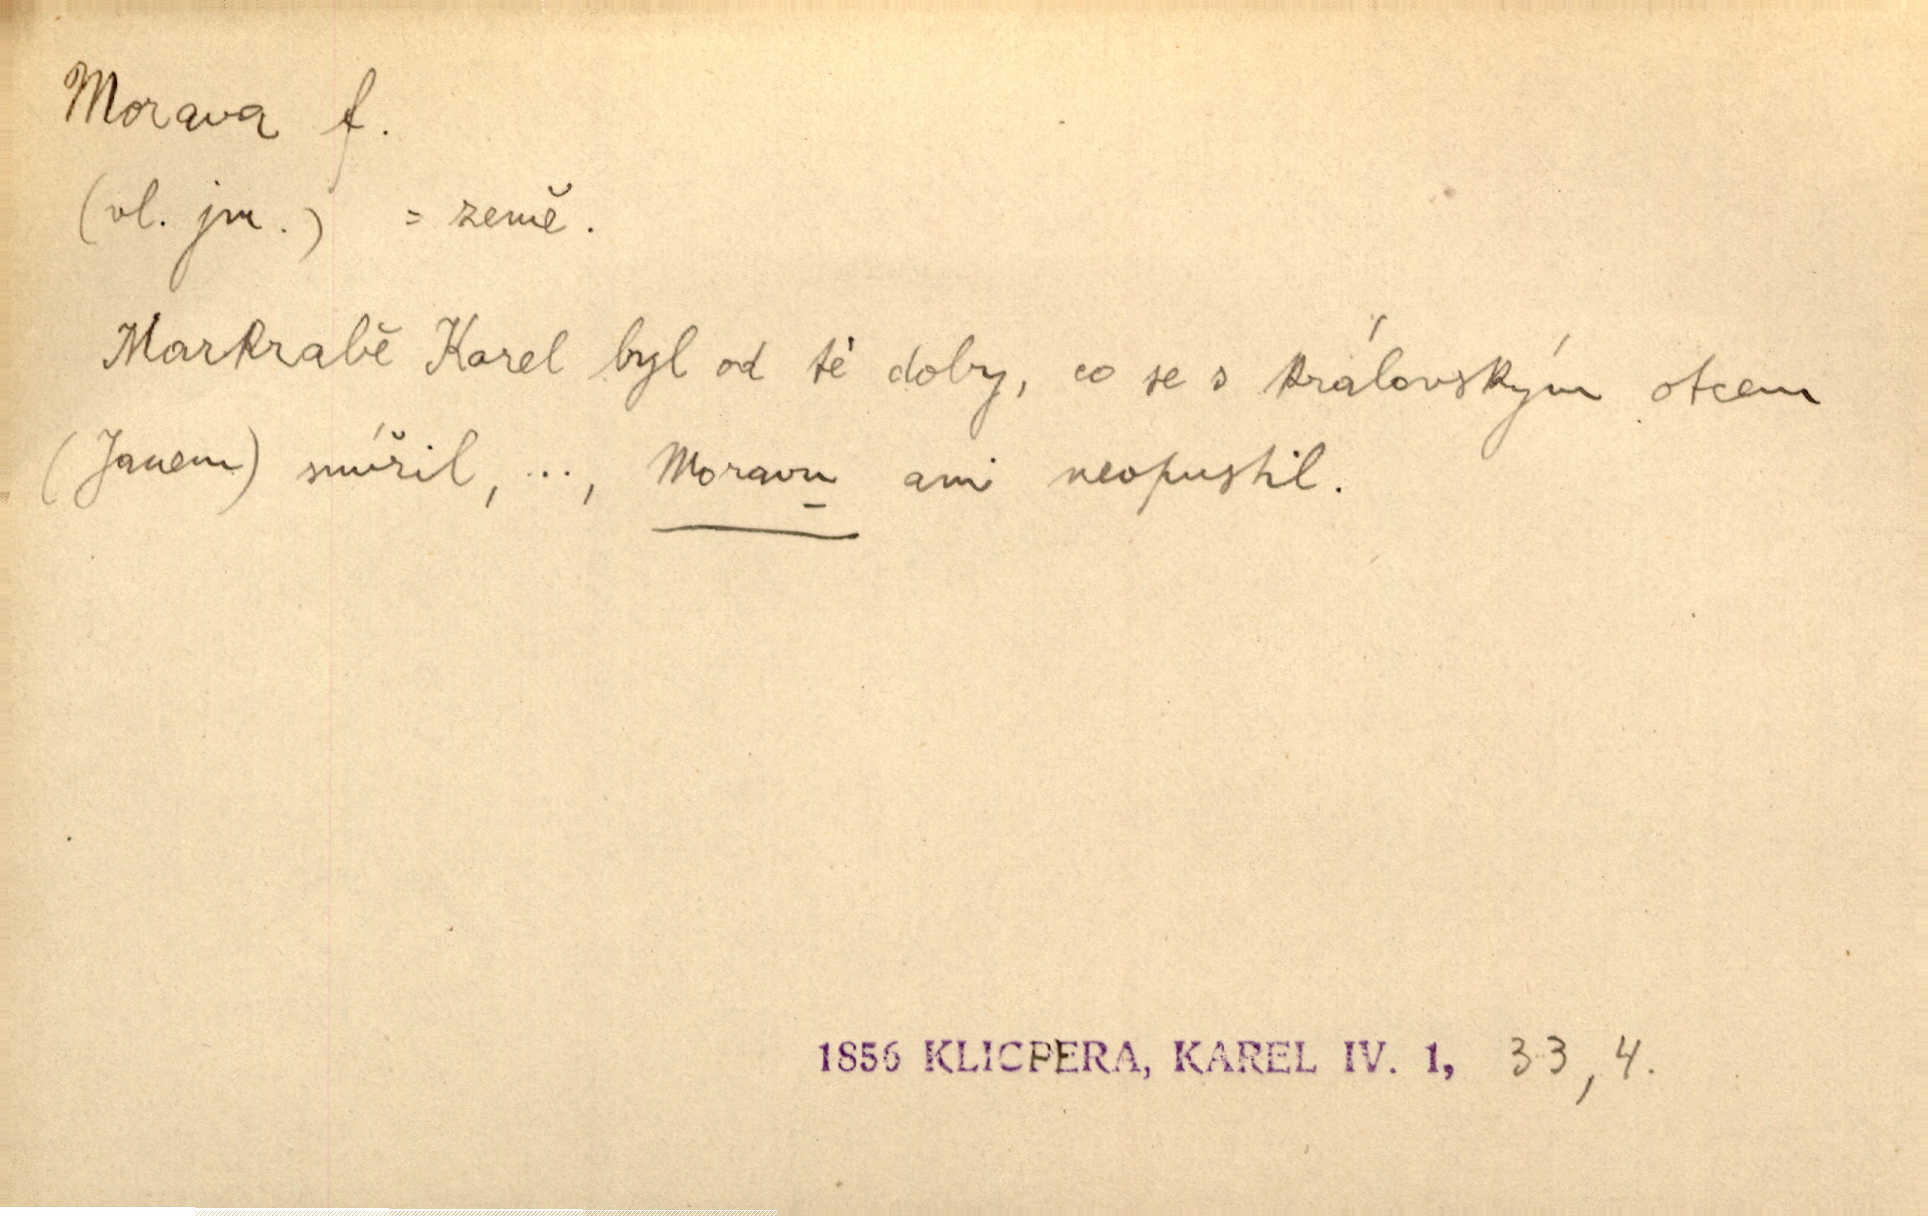 Morava f.
(vl. jm.) = země.
Markrabě Karel byl od té doby, co se s královským otcem
(Janem) smířil, ..., Moravu ani neopustil.
1856 KLICPERA, KAREL IV. 1, 33, 4.